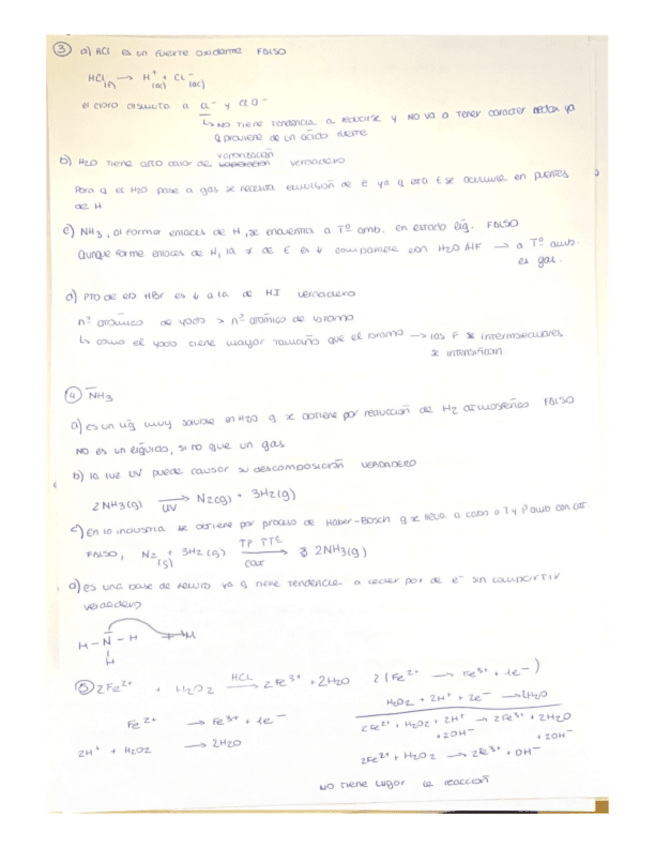 ③ a) HCl es un fuerte oxidante FALSO
HCl(l) → H⁺(ac) + Cl⁻(ac)
el cloro dismuta a Cl⁻ y ClO⁻
↳ NO tiene tendencia a reducirse y NO va a tener caracter redox ya
q proviene de un ácido fuerte
b) H2O tiene alto calor de vaporización verdadero
Para q el H2O pase a gas se necesita de E ya q esta E se acumula en puentes
de H
c) NH3, al formar enlaces de H, se encuentra a Tº amb. en estado líq. FALSO
Aunque forme enlaces de H, la de E es ↓ comparable con H2O HF → a Tº amb.
es gas.
d) PTO de eb HBr es ↓ a la de HI verdadero
nº atómico de yodo > nº atómico de bromo
↳ como el yodo tiene mayor tamaño que el bromo → las F intermoleculares
se intensifican
④ NH3
a) es un líq muy soluble en H2O q se obtiene por reducción de H2 atmosférico FALSO
NO es un líquido, si no que un gas
b) la luz UV puede causar su descomposición VERDADERO
2NH3(g) → UV N2(g) + 3H2(g)
c) En la industria se obtiene por proceso de Haber-Bosch q se lleva a cabo a T y P amb con cat.
FALSO, N2(g) + 3H2(g) → cat 2NH3(g)
d) es una base de Lewis ya q tiene tendencia a ceder par de e⁻ sin compartir
verdadero
H - N - H → M
H
⑤ 2Fe²⁺ + H2O2 HCl → 2Fe³⁺ + 2H2O 2(Fe²⁺ → Fe³⁺ + 1e⁻)
H2O2 + 2H⁺ + 2e⁻ → 2H2O
Fe²⁺ → Fe³⁺ + 1e⁻ 2Fe²⁺ + H2O2 + 2H⁺ → 2Fe³⁺ + 2H2O
+2OH⁻ +2OH⁻
2H⁺ + H2O2 → 2H2O
2Fe²⁺ + H2O2 → 2Fe³⁺ + OH⁻
NO tiene lugar la reacción